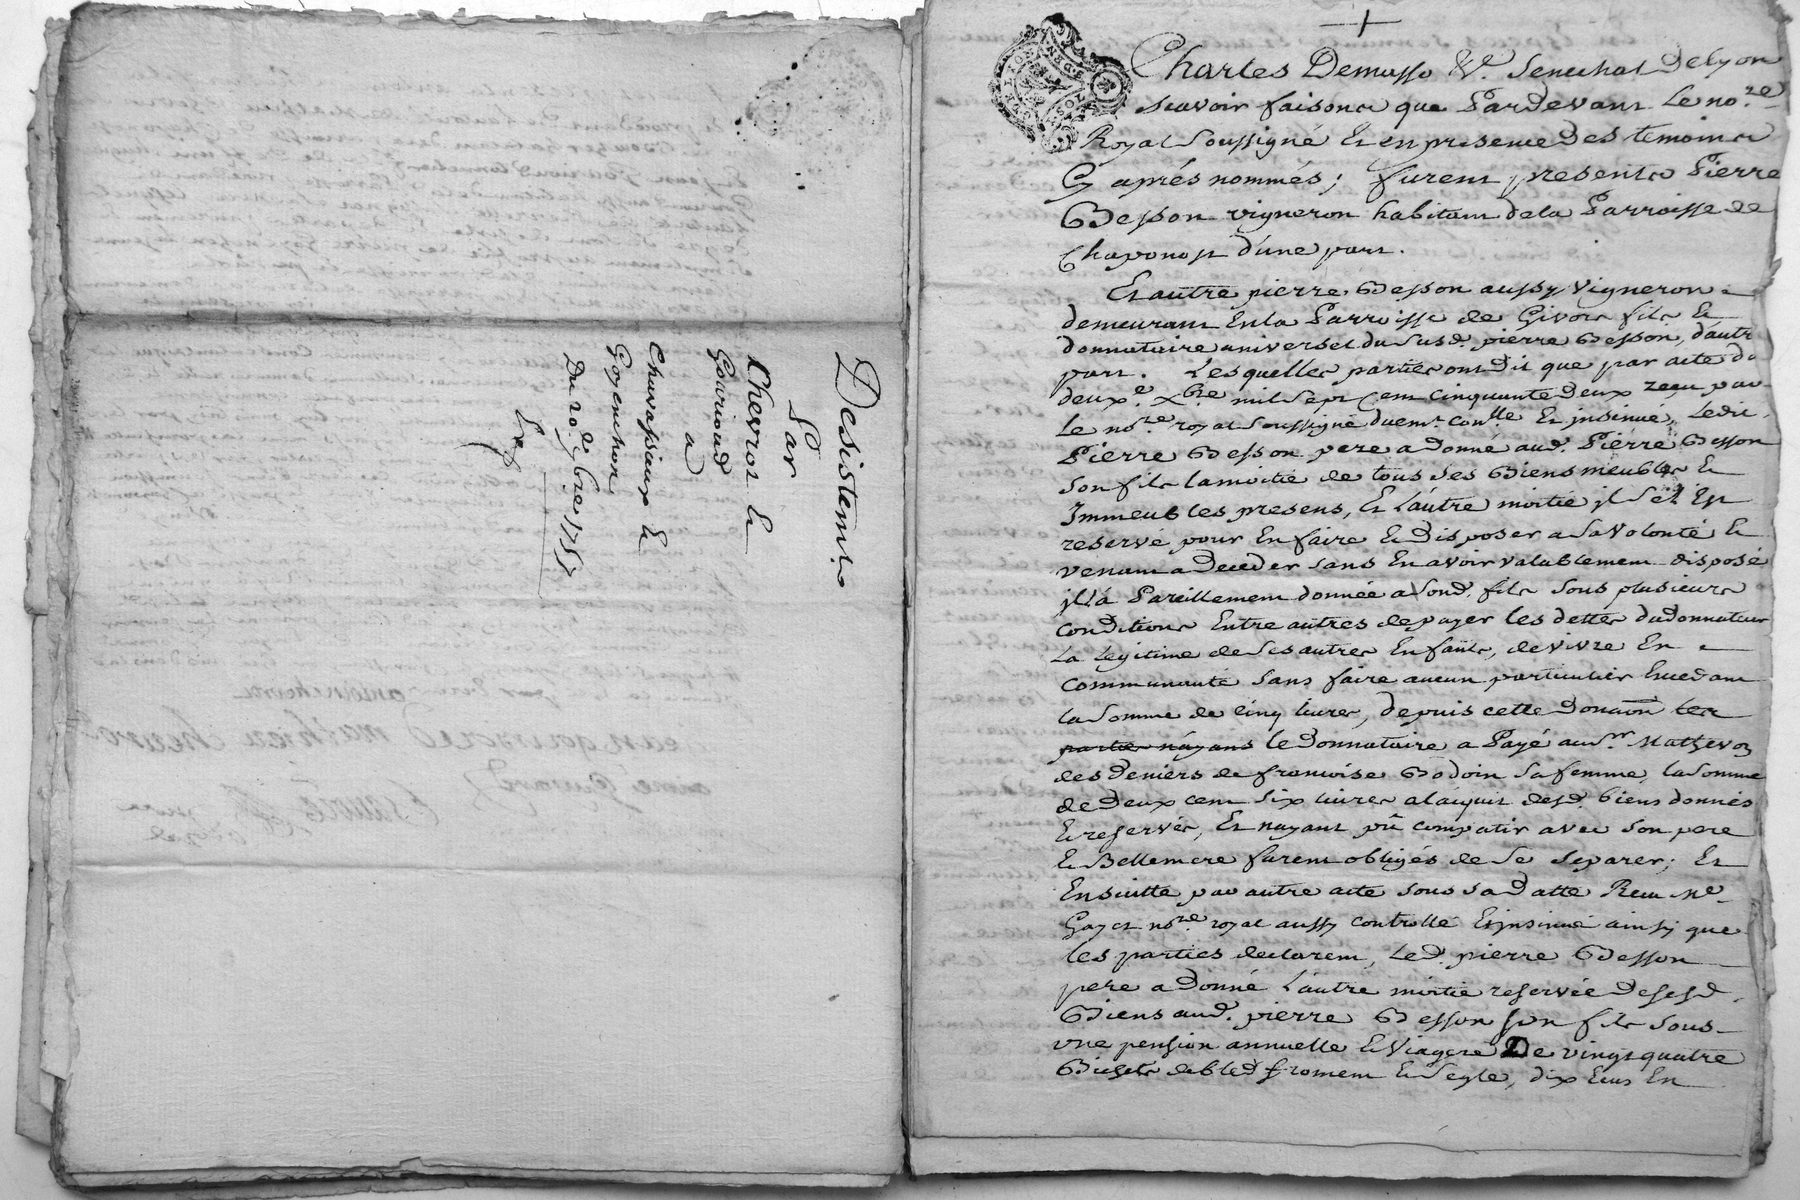 Desistemt.
Par
Chevrot &
Gourioud
a
Chavassieux &
Goyenchon
Du 20e. 9bre 1755
Exp
+
Charles Demasso &c. Senechal De lyon
scavoir faisons que Pardevant Le nore.
Royal soussigné Et en presence Des temoins
Cy aprés nommés; furent presents Pierre
Besson vigneron habitant de la Parroisse de
Chaponost d'une part.
Et autre pierre Besson aussy Vigneron
demeurant En la Parroisse de Givors fils &
donnataire universel du Susd. pierre Besson, d'autre
part. Lesquelles parties ont dit que par acte du
deuxe. xbre mil sept Cent cinquante Deux reçu par
Le nore. royal soussigné duemt. conlle Et insinué, Ledit
Pierre Besson pere a donné aud. Pierre Besson
son fils la moitié de tous ses Biens meubles &
Immeubles presens, Et L'autre moitié il s'est
reservé pour En faire & Disposer a sa Volonté &
venant a Deceder sans En avoir valablement disposé
il l'a Pareillement donnée a Sond. fils sous plusieurs
conditions Entre autres de payer les dettes du donnateur
La legitime de ses autres Enfants, de vivre En
communauté sans faire aucun particulier Excedant
la somme de cinq livres, depuis cette donaôn les
parties n'ayans le donnataire a Payé au Sr. Mathevon
des deniers de francoise Bodoin sa femme, la somme
de deux cent six livres a l'acquit desd. biens donnés
& reservés, Et n'ayant pû compatir avec son pere
& Bellemere furent obligés de se separer; Et
Ensuitte par autre acte sous sa Datte Recu Me.
Gayet nore. royal aussy controllé & insinué ainsy que
les parties declarent, Led. pierre Besson
pere a Donné L'autre moitié reservée De sesd.
Biens aud. pierre Besson son fils sous
une pension annuelle & Viagere De vingt quatre
Bichets de bled froment & Segle, dix Ecus En